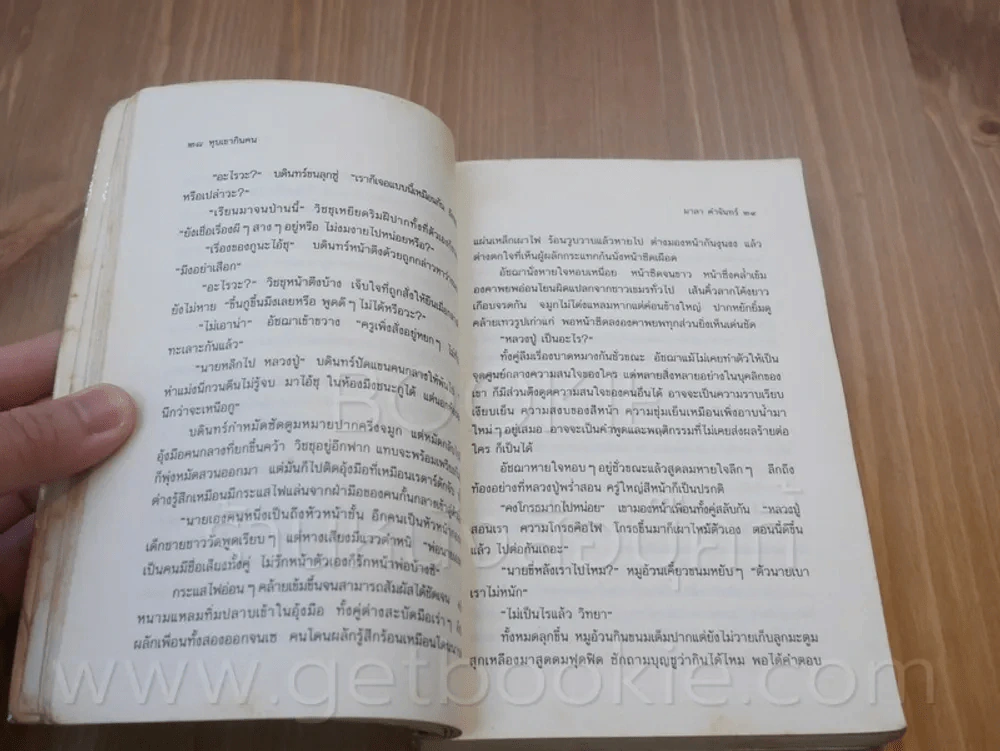 ๒๘ หุบเขากินคน
"อะไรวะ?" บดินทร์ขนลุกซู่ "เราก็เจอแบบนี้เหมือนกัน
หรือเปล่าวะ?"
"เรียนมาจนป่านนี้" วิชชุเหยียดริมฝีปากทั้งที่ตัวเองก็
"ยังเชื่อเรื่องผี ๆ สาง ๆ อยู่หรือ ไม่งมงายไปหน่อยหรือ?"
"เรื่องของกูนะไอ้ชุ" บดินทร์หน้าตึงด้วยถูกกล่าวหาว่า
"มึงอย่าเสือก"
"อะไรวะ?" วิชชุหน้าตึงบ้าง เจ็บใจที่ถูกสั่งให้ยืนเมื่อกลาง
ยังไม่หาย "ขึ้นกูขึ้นมึงเลยหรือ พูดดี ๆ ไม่ได้หรือวะ?"
"ไม่เอาน่า" อัชฌาเข้าขวาง "ครูเพิ่งสั่งอยู่หยก ๆ
ทะเลาะกันแล้ว"
"นายหลีกไป หลวงปู่" บดินทร์ปัดแขนคนกลางให้พ้น
ห้าแม่งนี่กวนตีนไม่รู้จบ มาไอ้ชุ ในห้องมึงชนะกูได้ แต่นอก
นึกว่าจะเหนือกู"
บดินทร์กำหมัดซัดตูมหมายปากครึ่งจมูก แต่หมัดกลับ
อุ้งมือคนกลางที่ยกขึ้นคว้า วิชชุอยู่อีกฟาก แทบจะพร้อม
ก็พุ่งหมัดสวนออกมา แต่มันก็ไปติดอุ้งมือที่เหมือนเรดาร์ดักจับ
ต่างรู้สึกเหมือนมีกระแสไฟแล่นจากฝ่ามือของคนกั้นกลางเข้าสู่
"นายเองคนหนึ่งเป็นถึงหัวหน้าชั้น อีกคนเป็นหัวหน้า
เด็กชายชาววัดพูดเรียบ ๆ แต่หางเสียงมีแววตำหนิ "พ่อนาย
เป็นคนมีชื่อเสียงทั้งคู่ ไม่รักหน้าตัวเองก็รักหน้าพ่อบ้างซิ"
กระแสไฟอ่อน ๆ คล้ายเข้มขึ้นจนสามารถสัมผัสได้ชัดเจน
หนามแหลมทิ่มปลาบเข้าในอุ้งมือ ทั้งคู่ต่างสะบัดมือเร่า ๆ
ผลักเพื่อนทั้งสองออกจนเซ คนโดนผลักรู้สึกร้อนเหมือนโดน
มาลา คำจันทร์ ๒๙
แผ่นเหล็กเผาไฟ ร้อนวูบวาบแล้วหายไป ต่างมองหน้ากันงุนงง แล้ว
ต่างตกใจที่เห็นผู้ผลักกระแทกก้นนั่งหน้าซีดเผือด
อัชฌานั่งหายใจหอบเหนื่อย หน้าซีดจนขาว หน้าซึ่งคล้ำเข้ม
องคาพยพอ่อนโยนผิดแปลกจากชาวเขมรทั่วไป เส้นคิ้วลากโค้งยาว
เกือบจรดกัน จมูกไม่โด่งแหลมหากแต่ค่อนข้างใหญ่ ปากหยักยิ้มดู
คล้ายเทวรูปเก่าแก่ พอหน้าซีดลงองคาพยพทุกส่วนยิ่งเห็นเด่นชัด
"หลวงปู่ เป็นอะไร?"
ทั้งคู่ลืมเรื่องบาดหมางกันชั่วขณะ อัชฌาแม้ไม่เคยทำตัวให้เป็น
จุดศูนย์กลางความสนใจของใคร แต่หลายสิ่งหลายอย่างในบุคลิกของ
เขา ก็มีส่วนดึงดูดความสนใจของคนอื่นได้ อาจจะเป็นความราบเรียบ
เงียบเย็น ความสงบของสีหน้า ความชุ่มเย็นเหมือนเพิ่งอาบน้ำมา
ใหม่ ๆ อยู่เสมอ อาจจะเป็นคำพูดและพฤติกรรมที่ไม่เคยส่งผลร้ายต่อ
ใคร ก็เป็นได้
อัชฌาหายใจหอบ ๆ อยู่ชั่วขณะแล้วสูดลมหายใจลึก ๆ ลึกถึง
ท้องอย่างที่หลวงปู่พร่ำสอน ครู่ใหญ่สีหน้าก็เป็นปรกติ
"คงโกรธมากไปหน่อย" เขามองหน้าเพื่อนทั้งคู่สลับกัน "หลวงปู่
สอนเรา ความโกรธคือไฟ โกรธขึ้นมาก็เผาไหม้ตัวเอง ตอนนี้ดีขึ้น
แล้ว ไปต่อกันเถอะ"
"นายขี่หลังเราไปไหม?" หมูอ้วนเคี้ยวขนมหยับ ๆ "ตัวนายเบา
เราไม่หนัก"
"ไม่เป็นไรแล้ว วิทยา"
ทั้งหมดลุกขึ้น หมูอ้วนกินขนมเต็มปากแต่ยังไม่วายเก็บลูกมะตูม
สุกเหลืองมาสูดดมฟุดฟิด ซักถามบุญชูว่ากินได้ไหม พอได้คำตอบ
BOOKIE
www.getbookie.com